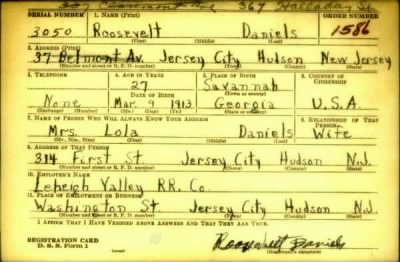 367 Halladay St.
SERIAL NUMBER 1. NAME (Print) ORDER NUMBER
3050 Roosevelt Daniels 1586
(First) (Middle) (Last)
2. ADDRESS (Print)
37 Belmont Av. Jersey City Hudson New Jersey
(Number and street or R. F. D. number) (Town) (County) (State)
3. TELEPHONE 4. AGE IN YEARS 5. PLACE OF BIRTH 6. COUNTRY OF CITIZENSHIP
27 Savannah
DATE OF BIRTH (Town or county)
None Mar. 9 1913 Georgia U.S.A.
(Mo.) (Day) (Yr.) (State or country)
7. NAME OF PERSON WHO WILL ALWAYS KNOW YOUR ADDRESS 8. RELATIONSHIP OF THAT PERSON
Mrs. Lola Daniels Wife
(Mr., Mrs., Miss) (First) (Middle) (Last)
9. ADDRESS OF THAT PERSON
314 First St. Jersey City Hudson N.J.
(Number and street or R. F. D. number) (Town) (County) (State)
10. EMPLOYER'S NAME
Leheigh Valley RR. Co.
11. PLACE OF EMPLOYMENT OR BUSINESS
Washington St. Jersey City Hudson N.J.
(Number and street or R. F. D. number) (Town) (County) (State)
I AFFIRM THAT I HAVE VERIFIED ABOVE ANSWERS AND THAT THEY ARE TRUE.
REGISTRATION CARD
D. S. S. Form 1
Roosevelt Daniels
(Registrant's signature)